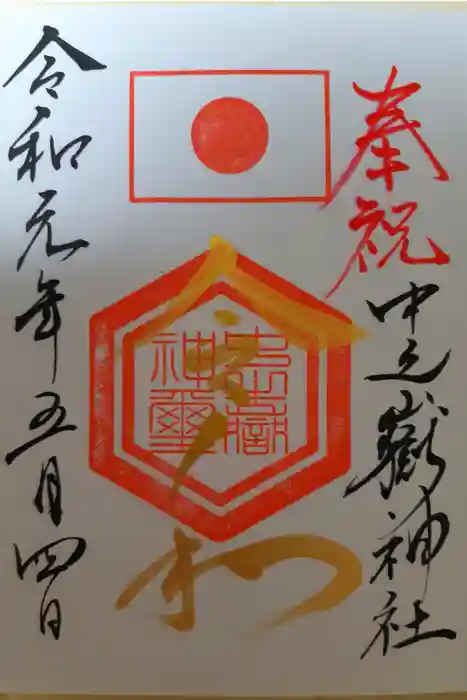 奉祝
中之嶽神社
令和
中之嶽神璽
令和元年五月四日